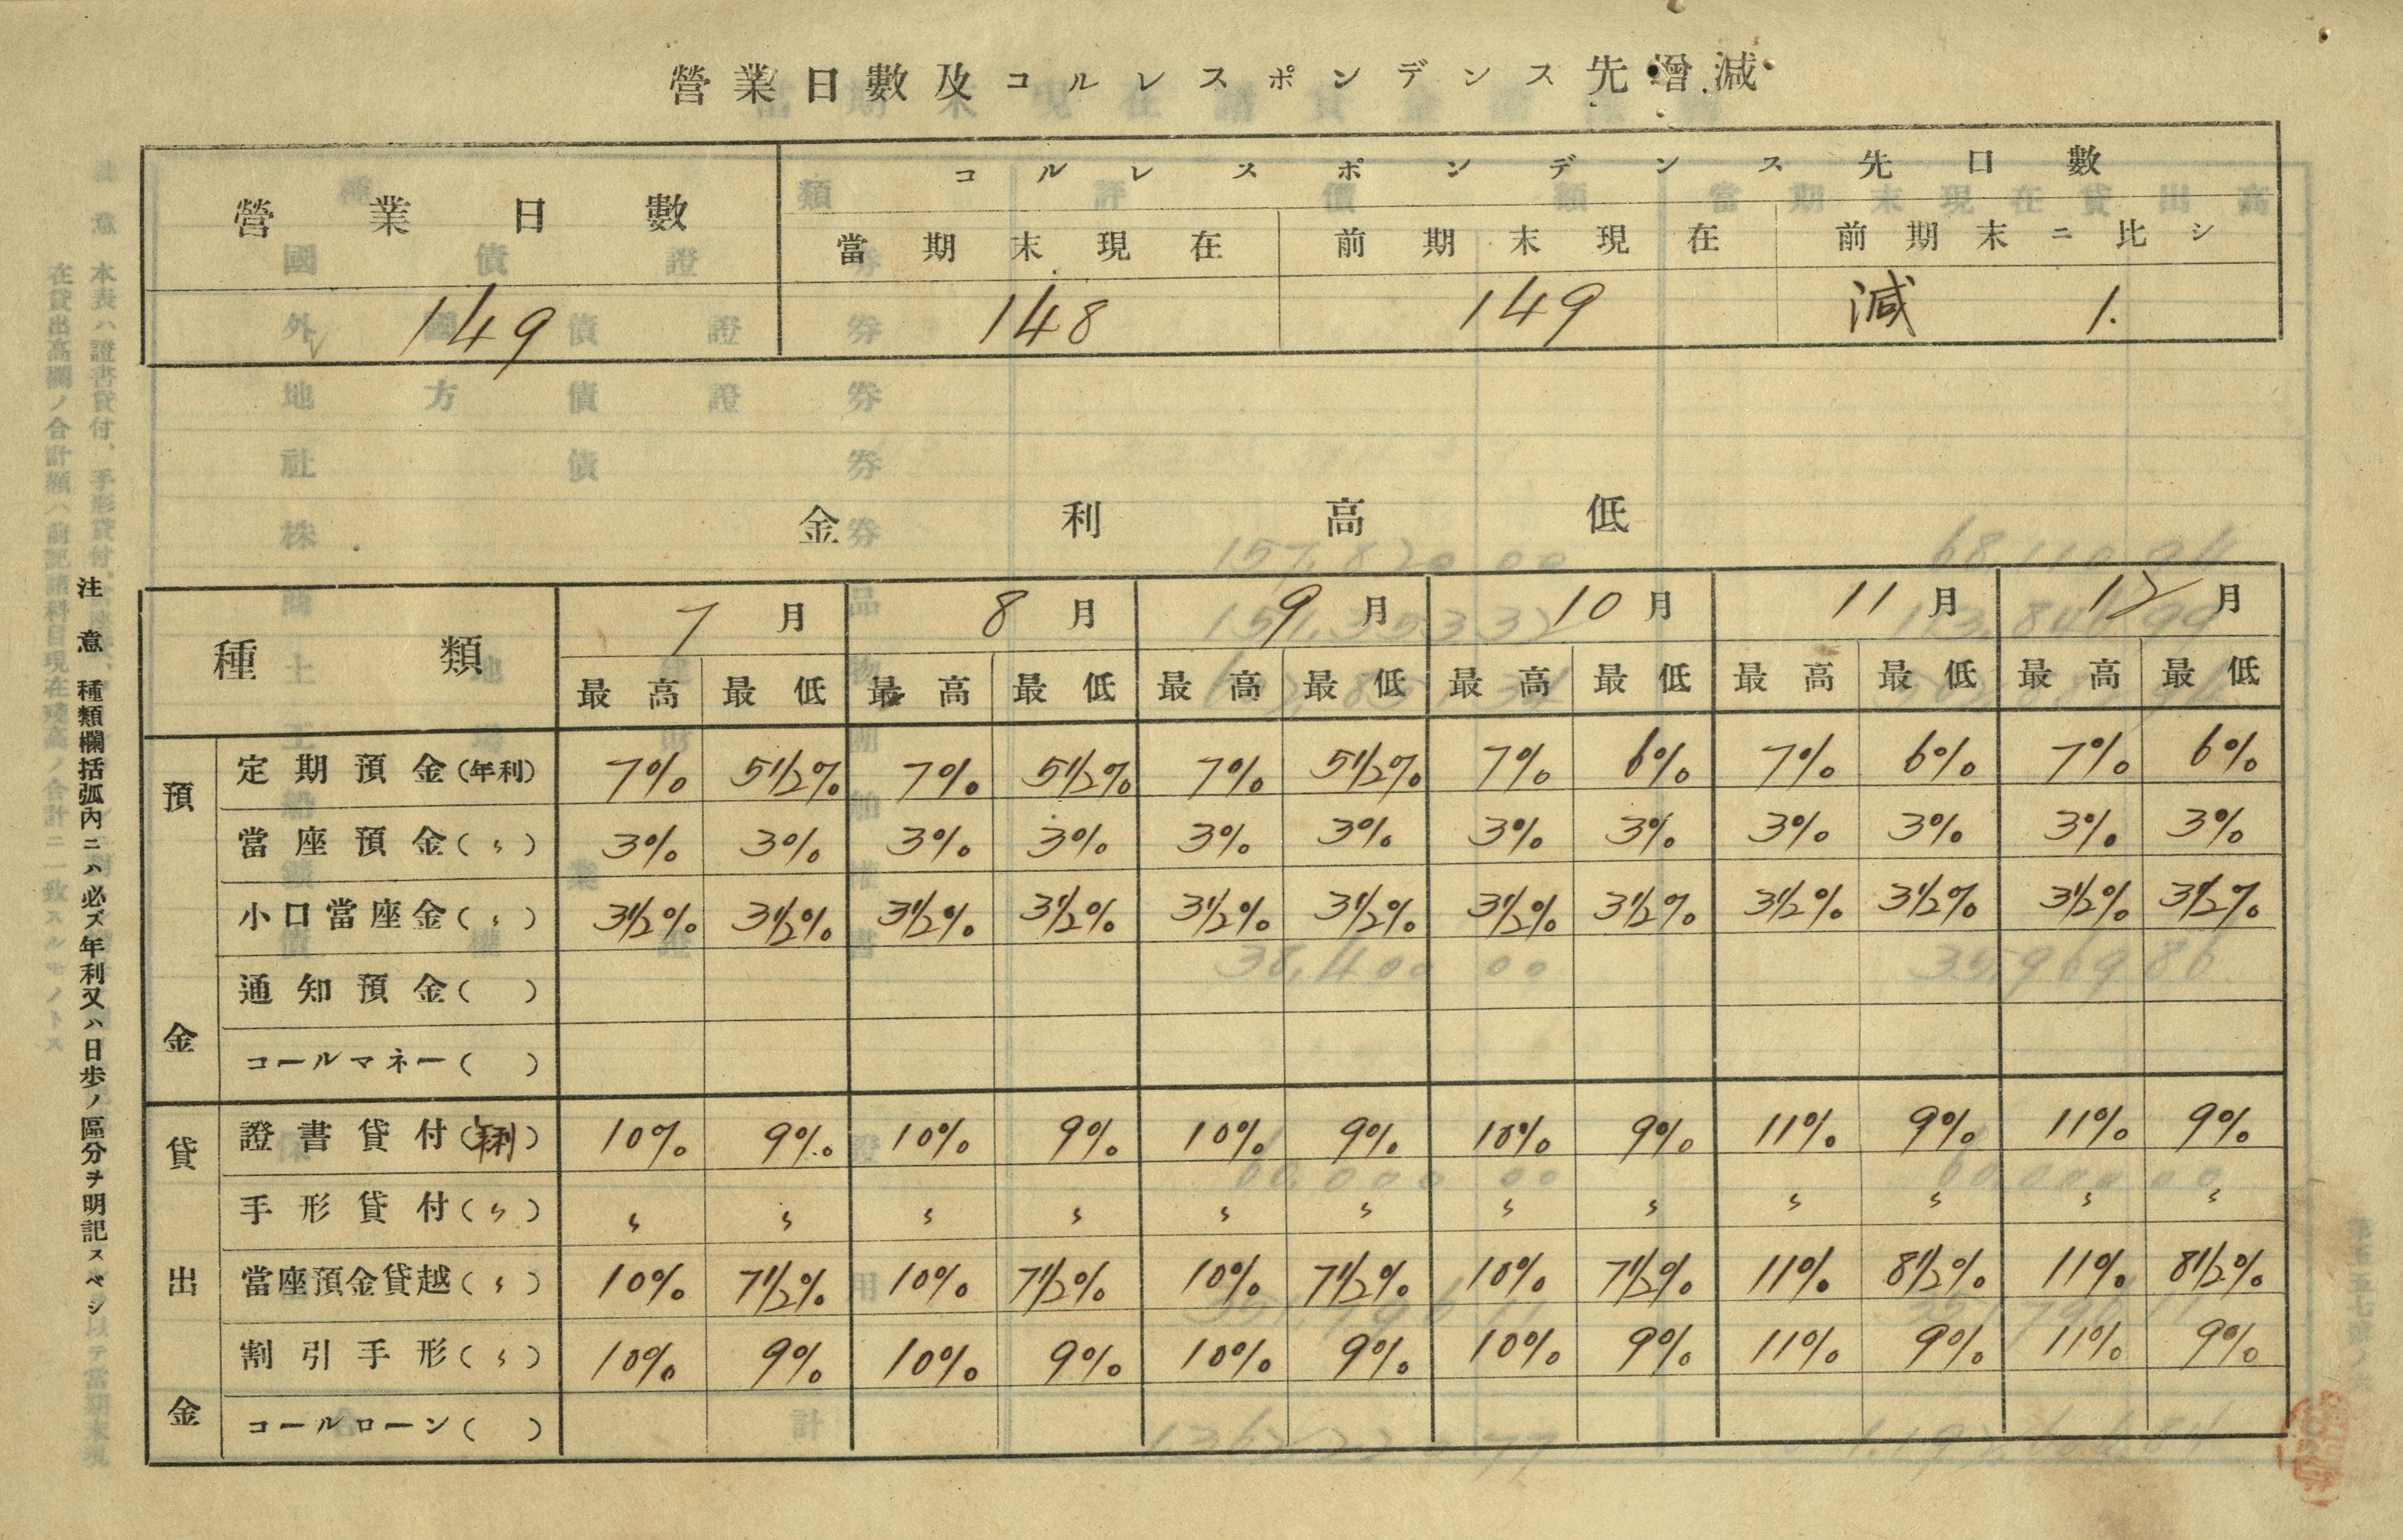 營業日數及コルレスポンデンス先增減
營業日數 コルレスポンデンス先口數
當期末現在 前期末現在 前期末ニ比シ
149 148 149 減 1.
金利高低
種類 7月 8月 9月 10月 11月 12月
最高 最低 最高 最低 最高 最低 最高 最低 最高 最低 最高 最低
預金
定期預金(年利) 7% 5 1/2% 7% 5 1/2% 7% 5 1/2% 7% 6% 7% 6% 7% 6%
當座預金(〻) 3% 3% 3% 3% 3% 3% 3% 3% 3% 3% 3% 3%
小口當座金(〻) 3 1/2% 3 1/2% 3 1/2% 3 1/2% 3 1/2% 3 1/2% 3 1/2% 3 1/2% 3 1/2% 3 1/2% 3 1/2% 3 1/2%
通知預金( )
コールマネー( )
貸出金
證書貸付(年利) 10% 9% 10% 9% 10% 9% 10% 9% 11% 9% 11% 9%
手形貸付(〻) 〻 〻 〻 〻 〻 〻 〻 〻 〻 〻 〻 〻
當座預金貸越(〻) 10% 7 1/2% 10% 7 1/2% 10% 7 1/2% 10% 7 1/2% 11% 8 1/2% 11% 8 1/2%
割引手形(〻) 10% 9% 10% 9% 10% 9% 10% 9% 11% 9% 11% 9%
コールローン( )
注意 種類欄括弧內ニハ必ズ年利又ハ日歩ノ區分ヲ明記スベシ